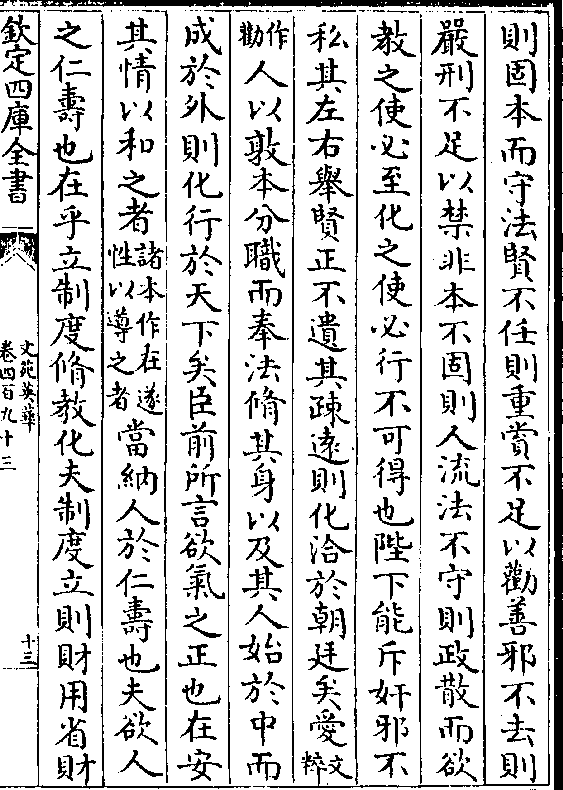 則固本而守法賢不任則重賞不足以勸善邪不去則
嚴刑不足以禁非本不固則人流法不守則政散而欲
教之使必至化之使必行不可得也陛下能斥奸邪不
私其左右舉賢正不遺其疎逺則化洽於朝廷矣愛文粹
作勸人以敦本分職而奉法脩其身以及其人始於中而
成於外則化行於天下矣臣前所言欲氣之正也在安
其情以和之者諸本作在遂性以導之者當納人於仁壽也夫欲人
之仁壽也在乎立制度脩教化夫制度立則財用省財
欽定四庫全書
文苑英華
卷四百九十三
十三